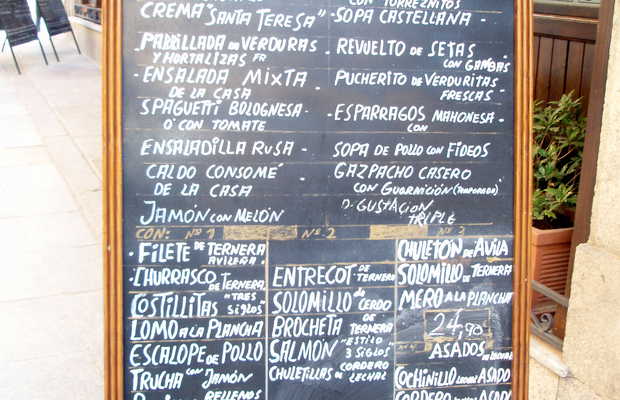 CON TORREZNITOS
CREMA "SANTA TERESA"
SOPA CASTELLANA
PARRILLADA DE VERDURAS
Y HORTALIZAS FR
REVUELTO DE SETAS
CON GAMBAS
ENSALADA MIXTA
DE LA CASA
PUCHERITO DE VERDURITAS
FRESCAS
SPAGUETTI BOLOGNESA
O' CON TOMATE
ESPARRAGOS MAHONESA
CON
ENSALADILLA RUSA
SOPA DE POLLO CON FIDEOS
CALDO CONSOMÉ
DE LA CASA
GAZPACHO CASERO
CON GUARNICIÓN (TEMPORADA)
JAMÓN CON MELÓN
D. GUSTACION
TRIPLE
CON: Nº 1
Nº 2
Nº 3
FILETE DE TERNERA
AVILEÑA
CHURRASCO DE
TERNERA
COSTILLITAS "TRES
SIGLOS"
LOMO A LA PLANCHA
ESCALOPE DE POLLO
TRUCHA CON JAMÓN
RELLENOS
ENTRECOT DE TERNERA
SOLOMILLO DE CERDO
BROCHETA DE TERNERA
SALMÓN "ESTILO
3 SIGLOS"
CHULETILLAS DE CORDERO
LECHAL
CHULETÓN DE AVILA
SOLOMILLO DE TERNERA
MERO A LA PLANCHA
24,90
ASADOS
COCHINILLO ASADO
CORDERO ASADO